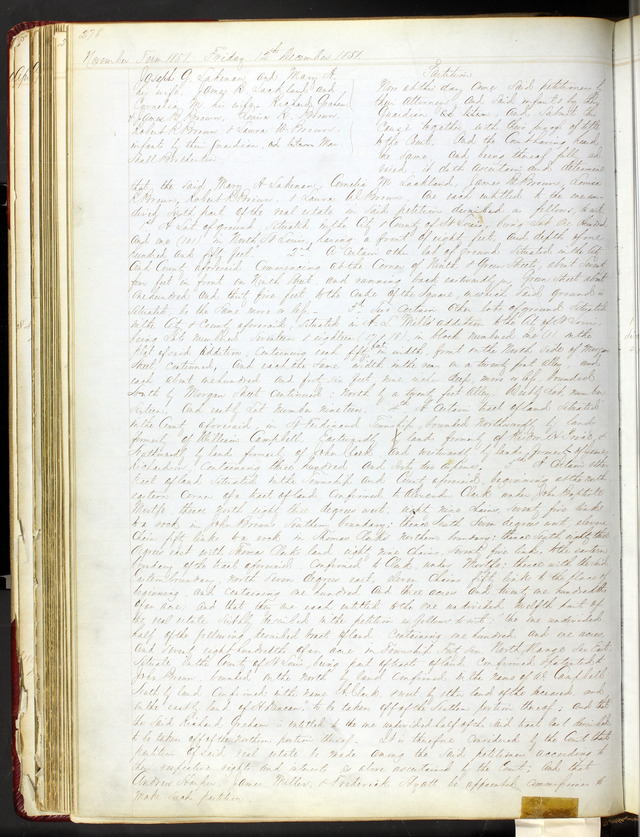 278
November Term 1851 Friday 12th December 1851
Joseph G. Lakenan and Mary A.
his wife, James R. Lackland and
Cornelia M. his wife, Richard Graham
James H. Brown, Louisa R. Brown
Robert R. Brown & Laura W. Brown
infants by their guardian,
Partition
Now at this day come said petitioners by
their attorney, and said infants by their
Guardian and submit the
Cause together with
the Court, And the Court having heard
the same, and being thereof fully
doth ascertain and determine
that the said Mary A. Lakenan, Cornelia M. Lackland, James H. Brown, Louisa
R. Brown, Robert R. Brown, & Laura W. Brown, are each entitled to the one un-
divided sixth part of the real estate in said petition described as follows, to wit:
1st A Lot of ground, situated in the City & County of St Louis, being lot one hundred
and one (101) in North St Louis, having a front of eighty feet and depth of one
hundred and fifty feet. 2nd A certain other lot of ground situated in the City
And County aforesaid, Commencing at the Corner of Ninth & Green Streets, about
feet in front on Ninth Street, and running back eastwardly on Green Street about
one hundred and thirty five feet to the end of the square in which said ground is
situated, be the same more or less. 3d Two certain other lots of ground situated
in the City & County aforesaid, situated in addition to the City of St Louis,
being Lots numbered seventeen & eighteen (17 & 18), in block numbered in the
Plat of said Addition, Containing each fifty feet in width, front on the North side of Morgan
Street continued, and each the same width in the rear on a twenty foot alley, and
each about one hundred and forty six feet nine inches deep, more or less, bounded
South by Morgan Street continued, North by a twenty foot Alley, West by Lot number
sixteen, And east by Lot number nineteen. 4th A Certain tract of land situated
in the County aforesaid, in St Ferdinand Township, bounded Northwardly by land
formerly of William Campbell, Eastwardly by land formerly of
Southwardly by land formerly of John Clark and westwardly by lands formerly of
Containing three hundred and sixty two Arpens. 5th A Certain other
tract of land situated in the Township and County aforesaid, beginning at the north
eastern Corner of a tract of land Confirmed to Alexander Clark under John Baptiste
thence North eighty three degrees west, eighty nine chains, seventy five links
to a rock in John Brown's Southern boundary; thence South seven degrees west eleven
Chains fifty links to a rock in Thomas Clark's northern boundary; thence South eighty three
degrees east with Thomas Clark's land eighty nine chains, seventy five links to the eastern
boundary of the tract aforesaid Confirmed to Clark under thence with the said
eastern boundary, north seven degrees east, eleven chains fifty links to the place of
beginning and containing one hundred and three acres and twenty one hundredths
of an acre, and that they are each entitled to the one undivided twelfth part of
the real estate lastly described in the petition as follows, to wit: the one undivided
half of the following described tract of land. Containing one hundred and one acres
and seventy eight hundredths of an acre in Township Forty Seven North Range Six East
situate in the County of St Louis, being part of tracts of land Confirmed & patented to
John Brown, bounded on the north by land Confirmed in the name of Wm Campbell
South by land Confirmed in the name of Clark, west by other land of the deceased, and
on the east by land of to be taken off of the southern portion thereof; and that
the said Richard Graham is entitled to the one undivided half of the said tract last described
to be taken off of the northern portion thereof. It is therefore Considered by the Court that
partition of said real estate be made among the said petitioners according to
their respective rights and interests as above ascertained by the Court; and that
Andrew Harper, James Miller, & Frederick Hyatt be appointed commissioners to
make such partition.